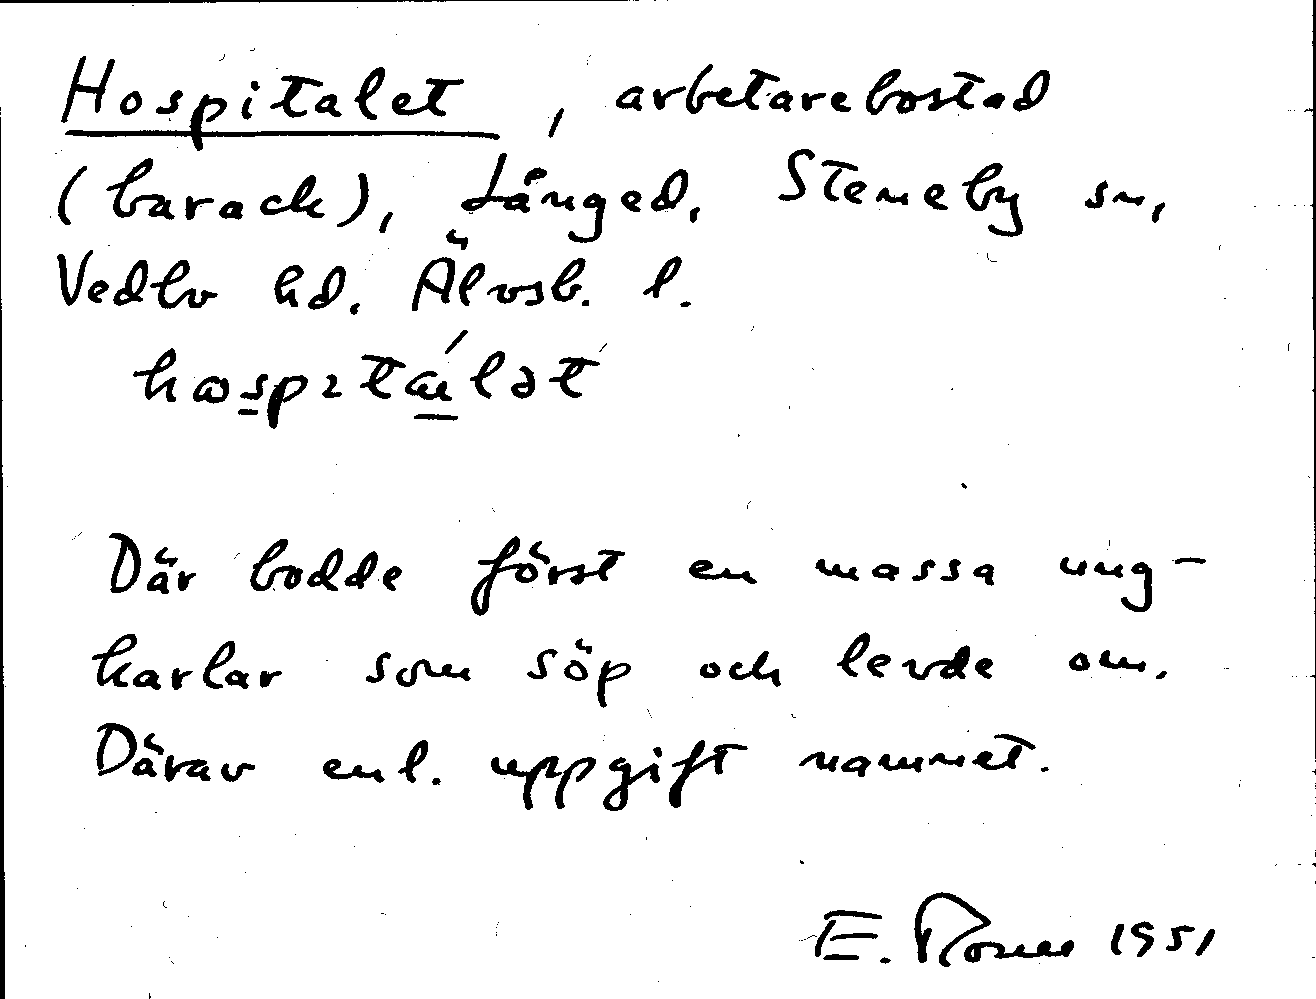 Hospitalet, arbetarebostad
(barack), Långed, Steneby sn,
Vedbo hd. Älvsb. l.
hospitalət
Där bodde först en massa ung-
karlar som söp och levde om.
Därav enl. uppgift namnet.
E. 1951